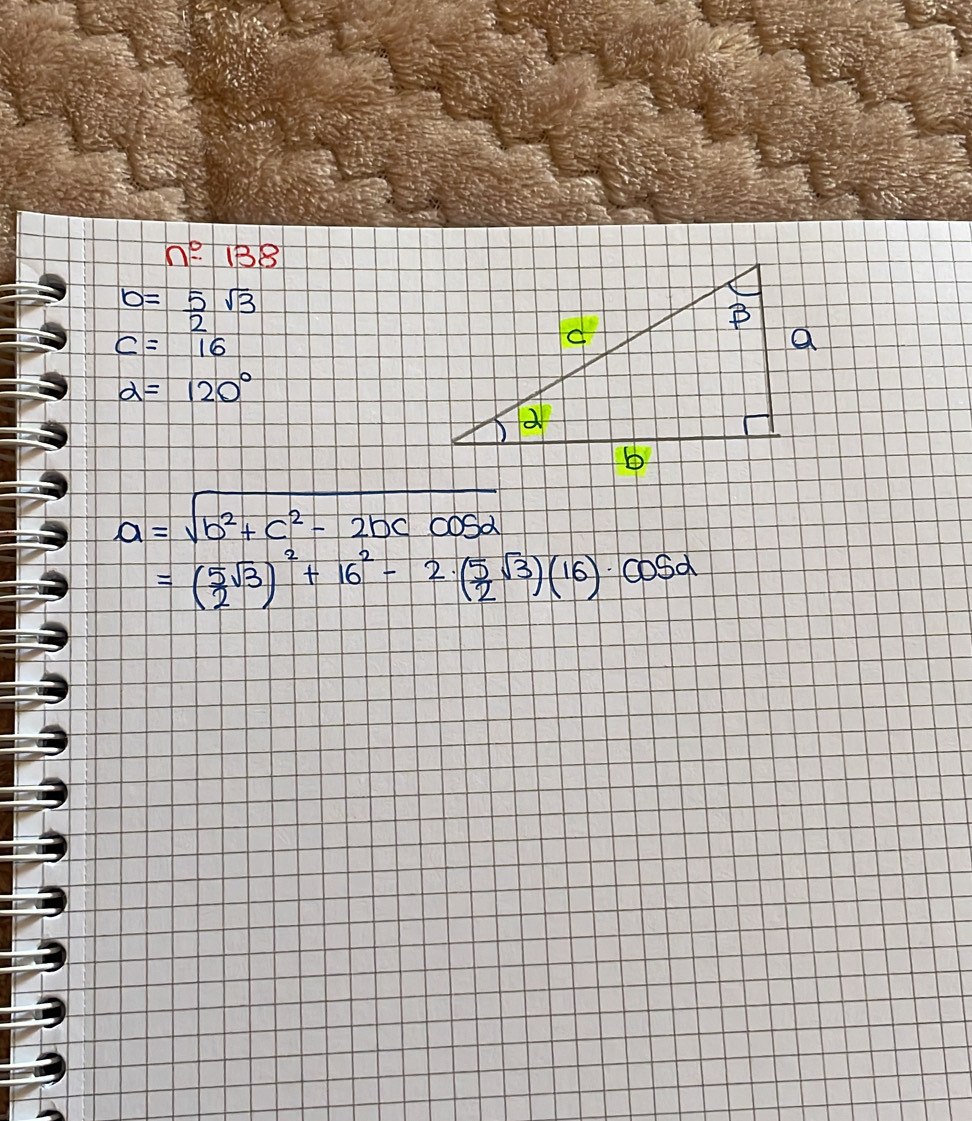 nº 138
b= 5/2 √3
c= 16
α= 120°
c
β
a
α
b
a = √b² + c² - 2bc cosα
= (5/2 √3)² + 16² - 2·(5/2 √3)(16)· cosα